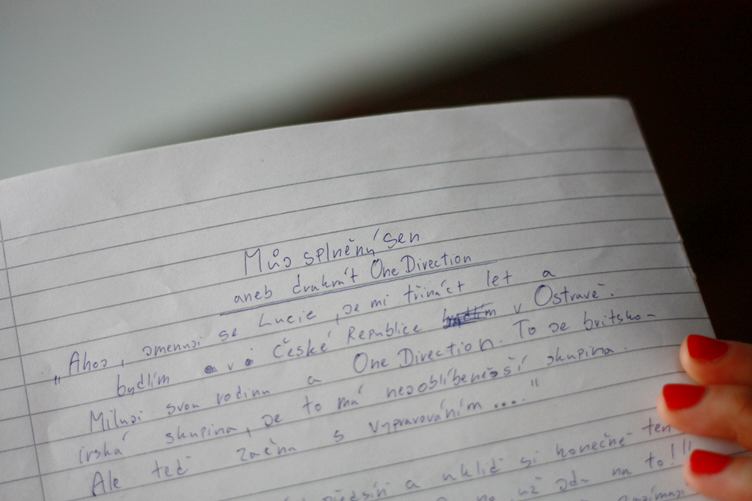 Můj splněný sen
aneb druhrát One Direction
"Ahoj, jmenuji se Lucie, je mi třináct let a
bydlím v České Republice v Ostravě.
Miluji svou rodinu a One Direction. To je britsko-
irská skupina, je to má nejoblíbenější skupina.
Ale teď začnu s vypravováním ...."
předsíň a ukliď si konečně ten
už jdu na to!!"